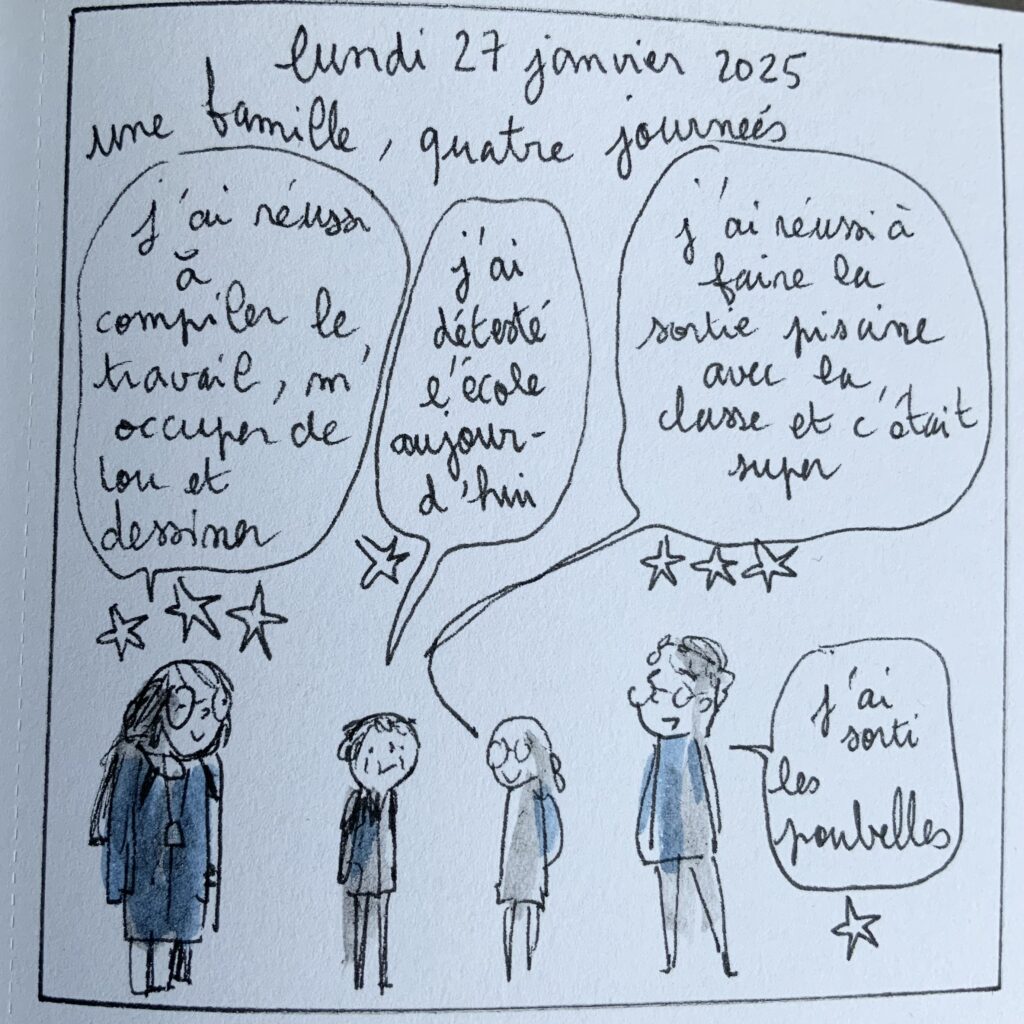 lundi 27 janvier 2025
une famille, quatre journées
j'ai réussi
à
compiler le
travail, m'
occuper de
lou et
dessiner
j'ai
détesté
l'école
aujour-
d'hui
j'ai réussi à
faire la
sortie piscine
avec la
classe et c'était
super
j'ai
sorti
les
poubelles